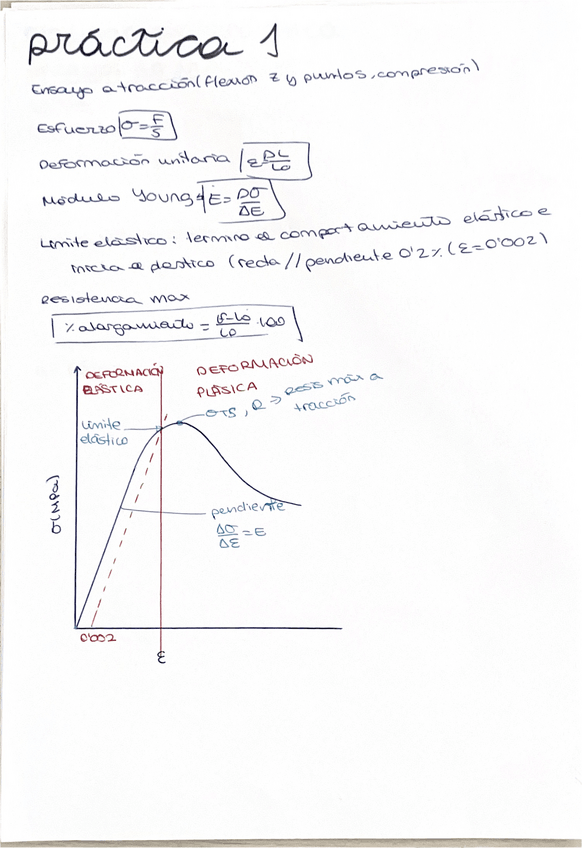 práctica 1
Ensayo a tracción (flexión 2 y puntos, compresión)
Esfuerzo σ=F/S
Deformación unitaria ε=DL/L0
Módulo Young E=Dσ/ΔE
Límite elástico: termino el comportamiento elástico e
inicia el plástico (recta // pendiente 0'2% (ε=0'002)
Resistencia max
% alargamiento = lf-lo/lo · 100
DEFORMACIÓN
ELÁSTICA
DEFORMACIÓN
PLÁSICA
σTS, R => Resis máx a
tracción
límite
elástico
σ(MPa)
pendiente
Δσ/Δε = E
0'002
ε